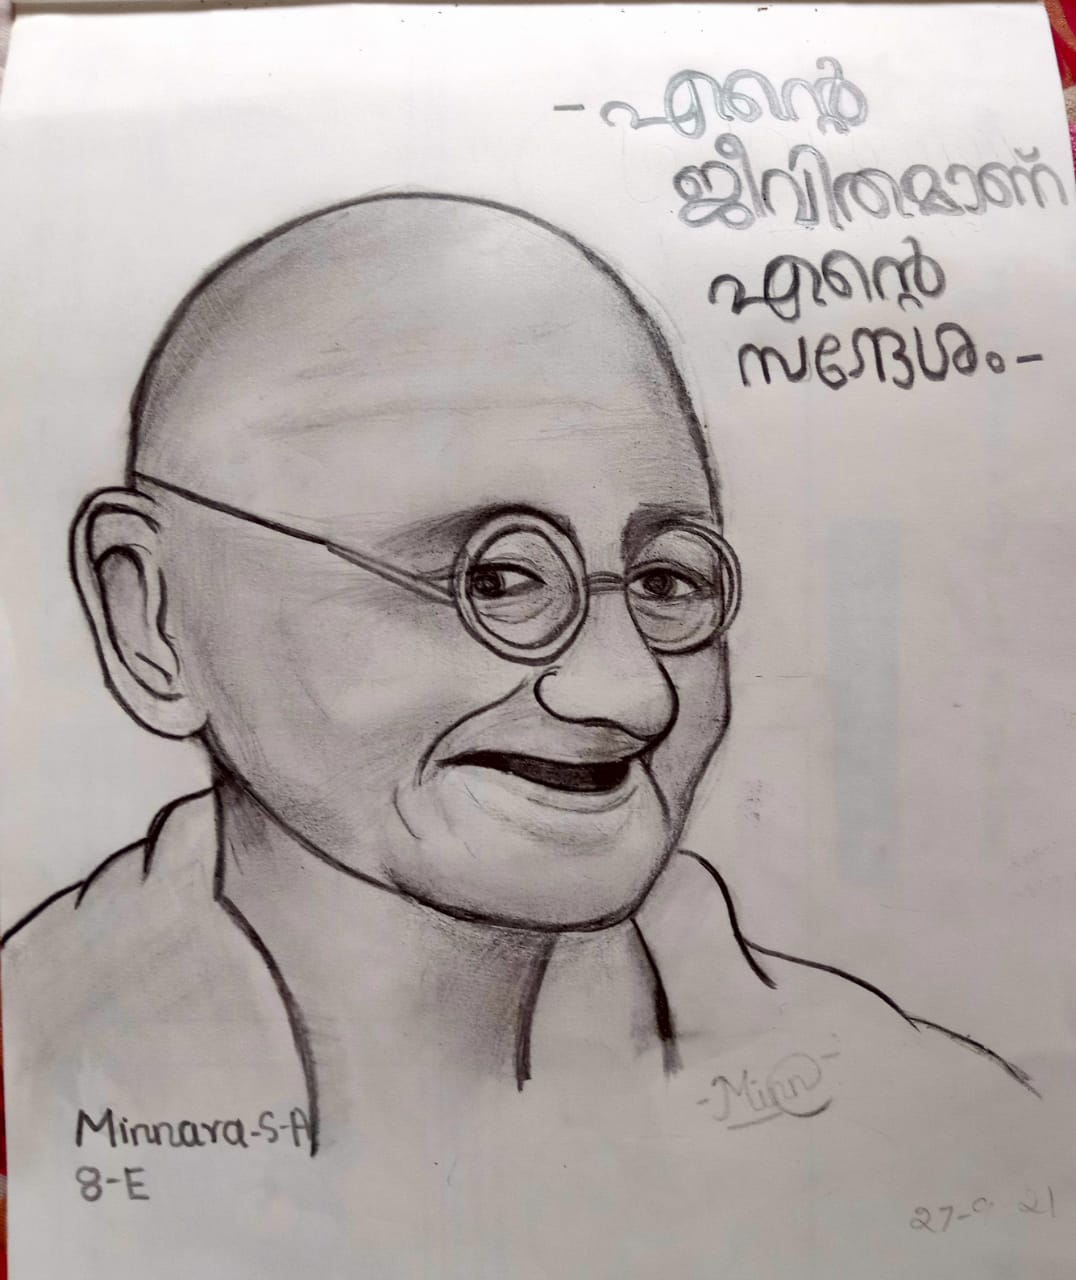 - എന്റെ
ജീവിതമാണ്
എന്റെ
സന്ദേശം -
-Minn-
Minnara-S-A
8-E